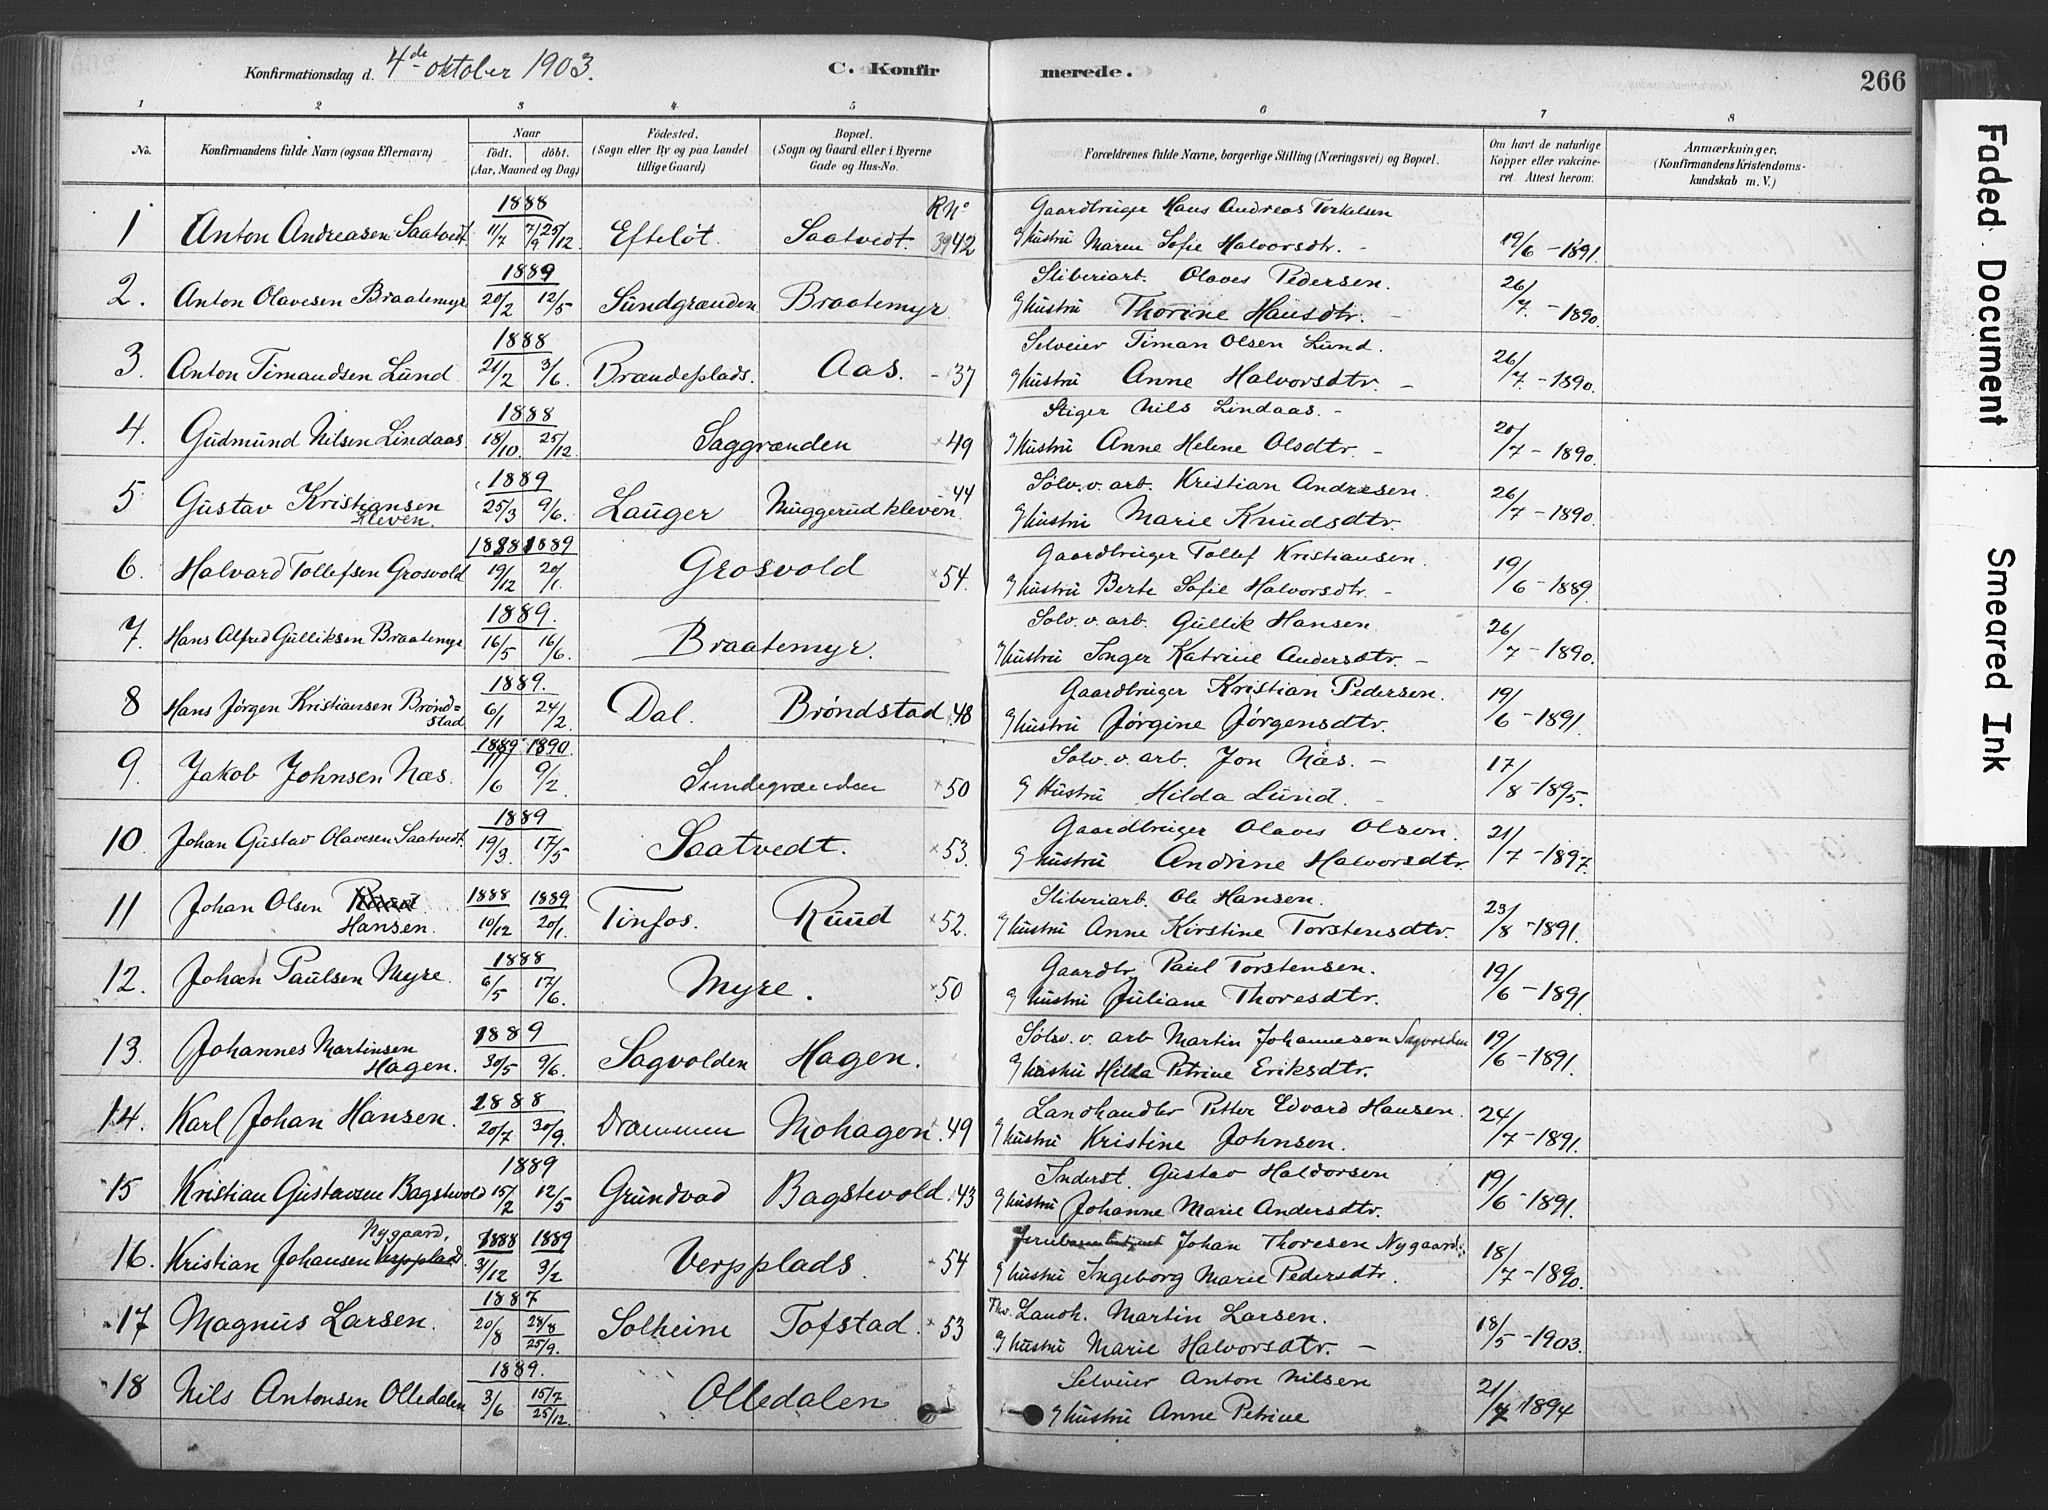 Konfirmationsdag d. 4de oktober 1903.
C. Konfirmerede.
266
1 2 3 4 5 6 7 8
No.
Konfirmandens fulde Navn (ogsaa Efternavn)
Naar
födt. döbt.
(Aar, Maaned og Dag)
Födested.
(Sogn eller By og paa Landet
tillige Gaard)
Bopæl.
(Sogn og Gaard eller i Byerne
Gade og Hus-No.
Forældrenes fulde Navne, borgerlige Stilling (Næringsvei) og Bopæl.
Om havt de naturlige
Kopper eller vakcine-
ret Attest herom.
Anmærkninger,
(Konfirmandens Kristendoms-
kundskab m. V.)
1888 R No Gaardbruger Hans Andreas Torkelsen
1 Anton Andreasen Saatvedt 11/7 7/9 25/12 Efteløt. Saatvedt. 3942 og hustru Maren Sofie Halvorsdtr. - 19/6 - 1891.
1889 Sliberiarb. Olaves Pedersen.
2. Anton Olavesen Braatemyr 20/2 12/5 Sundgrænden Braatemyr og hustru Thorine Hansdtr. - 26/7. - 1890.
1888 Selveier Timan Olsen Lund.
3. Anton Timandsen Lund 21/2 3/6. Brændeplads. Aas. - 37 og hustru Anne Halvorsdtr. - 26/7 - 1890.
1888 Stiger Nils Lindaas. -
4. Gudmund Nilsen Lindaas 18/10. 25/12 Saggrænden 49 og hustru Anne Helene Olsdtr. - 20/7 - 1890.
1889 Sølv. v. arb. Kristian Andresen.
5 Gustav Kristiansen 25/3 9/6. Lauger Muggerudkleven 44 og hustru Marie Knudsdtr. 26/7 - 1890.
Kleven.
1888 1889 Gaardbruger Tollef Kristiansen.
6. Halvard Tollefsen Grosvold 19/12 20/1. Grosvold 54. og hustru Berte Sofie Halvorsdtr. - 19/6 - 1889.
1889. Sølv. v. arb. Gullik Hansen
7. Hans Alfred Gulliksen Braatemyr 16/5 16/6. Braatemyr. og hustru Inger Katrine Andersdtr. - 26/7 - 1890.
1889. Gaardbruger Kristian Pedersen.
8 Hans Jørgen Kristiansen Brønd= 6/1 24/2. Dal. Brøndstad 48 og hustru Jørgine Jørgensdtr. 19/6 - 1891.
stad
1889 1890. Sølv. v. arb. Jon Næs. -
9. Jakob Johnsen Næs. /6 9/2. Sundegrænden 50 og Hustru Hilda Lund. - 17/8 - 1895.
1889 Gaardbruger Olaves Olsen.
10. Johan Gustav Olavesen Saatvedt. 19/3. 17/5 Saatvedt. 53. og hustru Andrine Halvorsdtr 21/7 - 1897.
1888 1889 Sliberiarb. Ole Hansen.
11 Johan Olsen Ruud. 10/12 20/1. Tinfos. Ruud 52. og hustru Anne Kirstine Torstensdtr. 23/8 - 1891.
Hansen.
1888 Gaardbr Paul Torstensen.
12. Johan Paulsen Myre. 6/5 17/6. Myre. 50 og hustru Juliane Thoresdtr. 19/6 - 1891.
1889 Sølv. v. arb Martin Johannesen Sagvolden
13. Johannes Martinsen 30/5 9/6. Sagvolden Hagen. og hustru Hilda Petrine Eriksdtr. 19/6 - 1891.
Hagen.
1888 Landhandler Petter Edvard Hansen.
14. Karl Johan Hansen. 20/7 30/9. Drammen Mohagen. 49 og hustru Kristine Johnsen. 24/7 - 1891.
1889 Inderst. Gustav Haldorsen
15 Kristian Gustavsen Bagstevold 15/2 12/5 Grundvad Bagstevold. 43 og hustru Johanne Marie Andersdtr. 19/6 - 1891.
Nygaard, 1888 1889 Johan Thoresen Nygaard.
16. Kristian Johansen Verpplads. 31/12 3/2 Verpplads. 54 og hustru Ingeborg Marie Pedersdtr. 18/7 - 1890.
1887 Landh. Martin Larsen.
17 Magnus Larsen. 20/8 28/8 25/9. Solheim Tofstad. 53 og hustru Marie Halvorsdtr. - 18/5 - 1903.
1889. Selveier Anton Nilsen
18 Nils Antonsen Olledalen 3/6 15/7 25/12. Olledalen og hustru Anne Petrine 21/7 1894
Faded Document
Smeared Ink